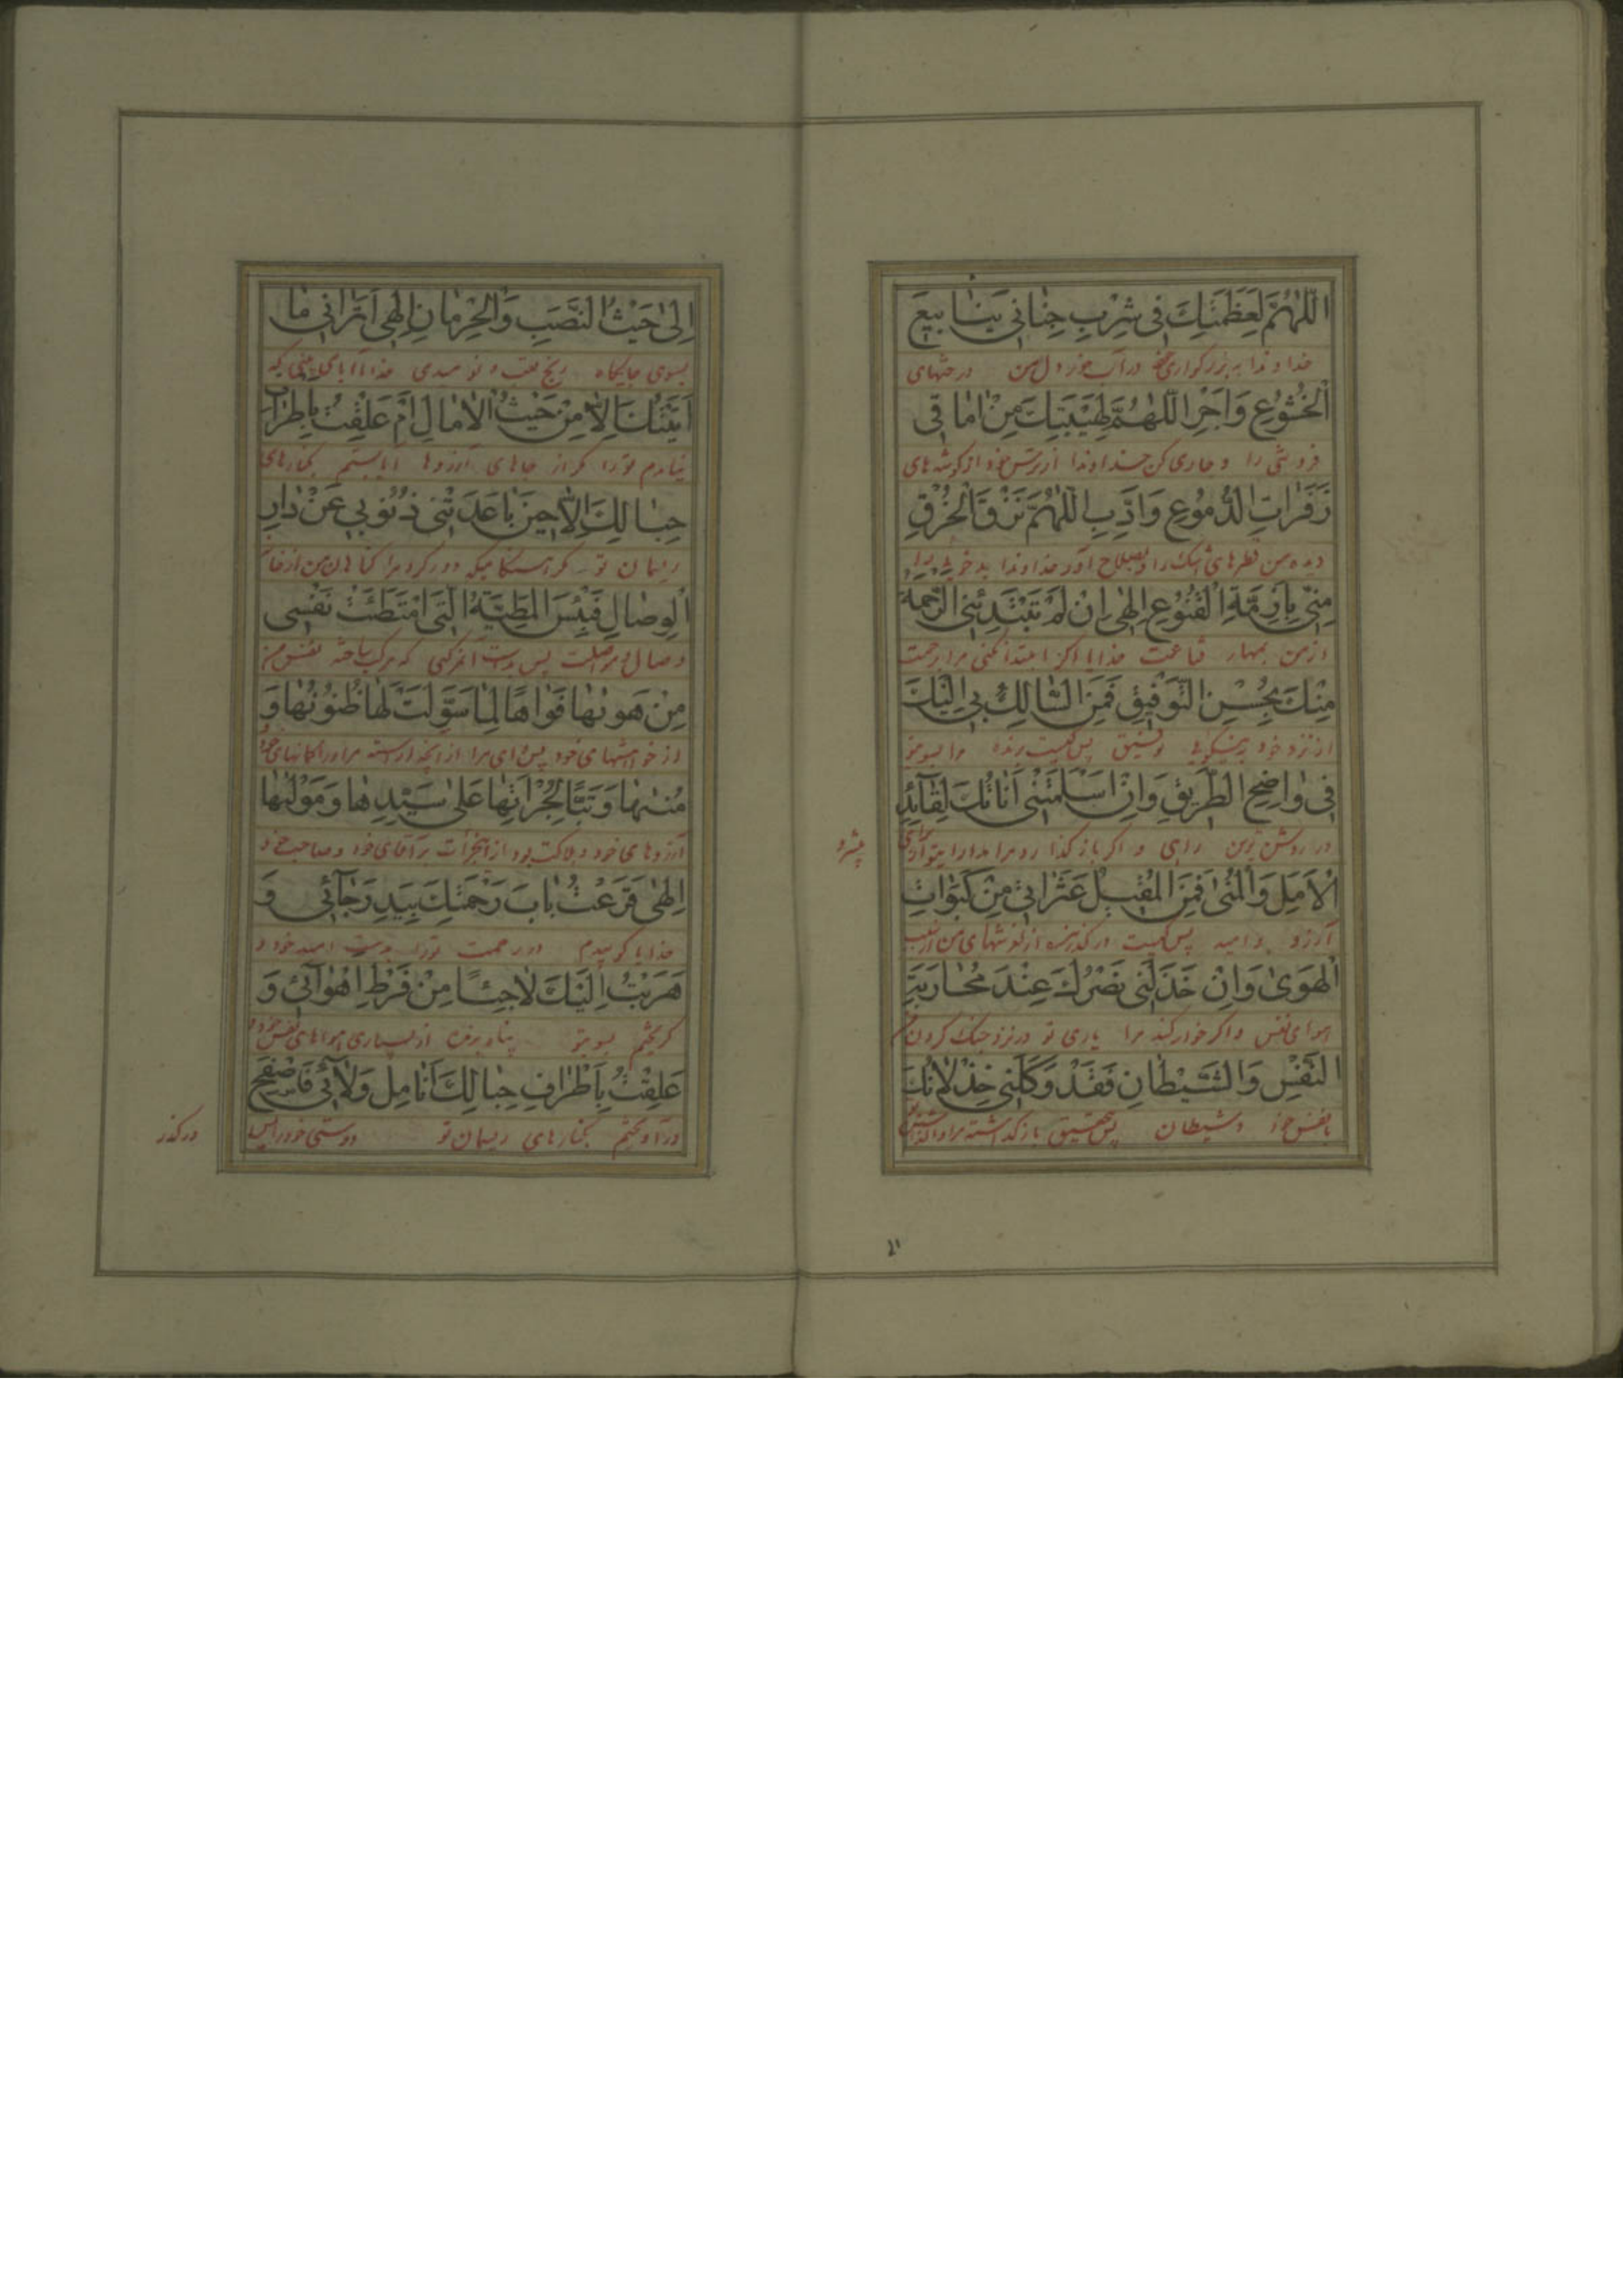 اللّٰهُمَّ لِعَظَمَتِكَ فِی شِرْبِ جِنٰانی یَنٰابیعَ
خداوندا به بزرگواری خود در آب خور دل من
الْخُشُوعِ وَاَجْرِ اللّٰهُمَّ لِهَیْبَتِکَ مِنْ اٰمٰاقی
فروتنی را و جاری کن خداوندا از ترس خود از کوشه های
زَفَرٰاتِ الدُّمُوعِ وَاَدِّبِ اللّٰهُمَّ نَزَقَ الْخُرْقِ
دیده من قطرهای اشک را و بصلاح آور خداوندا
مِنّی بِاَزِمَّةِ الْقُنُوعِ اِلٰهی اِنْ لَمْ تَبْتَدِئْنِی الرَّحْمَةُ
از من بمهار قناعت خدایا اکر ابتدا نکنی مرا رحمت
مِنْكَ بِحُسْنِ التَّوْفیقِ فَمَنِ السّٰالِكُ بی اِلَیْكَ
از نزد خود توفیق پس کیست مرا بسوی تو
فی وٰاضِحِ الطَّریقِ وَاِنْ اَسْلَمَتْنی اَنٰاتُكَ لِقٰآئِدِ
در روشن ترین راهی و اکر باز کذارد مرا مدارا
الْاَمَلِ وَالْمُنیٰ فَمَنِ الْمُقیلُ عَثَرٰاتی مِنْ كَبَوٰاتِ
آرزو و امید پس کیست درکذرنده از لغزشهای من
الْهَوىٰ وَاِنْ خَذَلَنی نَصْرُكَ عِنْدَ مُحٰارَبَةِ
هوای نفس و اکر خوار کند مرا یاری تو در نزد جنک کردن
النَّفْسِ وَالشَّیْطٰانِ فَقَدْ وَكَلَنی خِذْلٰانُكَ
با نفس خود و شیطان پس بتحقیق باز کذاشته مرا
اِلیٰ حَیْثُ النَّصَبِ وَالْحِرْمٰانِ اِلٰهی اَتَرٰانی مٰا
بسوی جایکاه رنج تعب و نومیدی خدایا آیا می بینی که
اَتَیْتُكَ اِلّٰا مِنْ حَیْثُ الْاٰمٰالِ اَمْ عَلِقْتُ بِاَطْرٰافِ
نیامدم تو را مکر از جاهای آرزوها آیا بستم بکنارهای
حِبٰالِكَ اِلّٰا حینَ بٰاعَدَتْنی ذُنُوبی عَنْ دٰارِ
ریسمان تو مکر هنکامیکه دور کرد مرا کناهان من از خانه
الْوِصٰالِ فَبِئْسَ الْمَطِیَّةُ الَّتی امْتَطَئَتْ نَفْسی
وصال و مواصلت پس بد است آن مرکبی که مرکب ساخته نفس من
مِنْ هَوٰیهٰا فَوٰاهًا لِمٰا سَوَّلَتْ لَهٰا ظُنُونُهٰا وَ
از خواهشهای خود پس وای مرا از آنچه آراسته مر او را کمانهای خود
مُنٰیهٰا وَتَبًّا لِجُرْاَتِهٰا عَلیٰ سَیِّدِهٰا وَمَوْلٰیهٰا
آرزوهای خود و هلاکت بود از این جرات بر آقای خود و صاحب خود
اِلٰهی قَرَعْتُ بٰابَ رَحْمَتِكَ بِیَدِ رَجٰآئی وَ
خدایا کوبیدم در رحمت تو را بدست امید خود و
هَرَبْتُ اِلَیْكَ لٰاجِئًا مِنْ فَرْطِ اَهْوٰآئی وَ
کریختم بسوی تو پناه برنده از بسیاری هواهای نفس خود و
عَلِقْتُ بِاَطْرٰافِ حِبٰالِكَ اَنٰامِلَ وَلٰآئی فَاصْفَحِ
در آویختم بکنارهای ریسمان تو دوستی خود را پس
درکذر